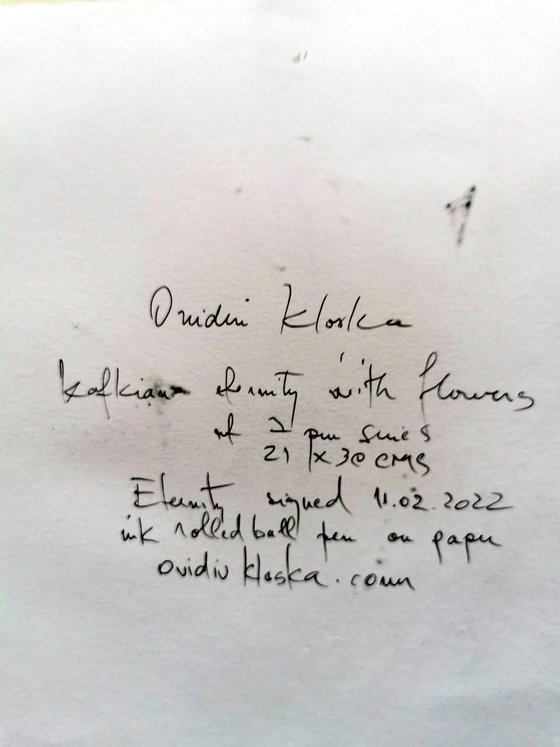 Ovidiu Kloska
Kafkian eternity with flowers
series
21 x 30 cms
Eternity signed 11.02.2022
ink rolled ball pen on paper
ovidiu kloska.com